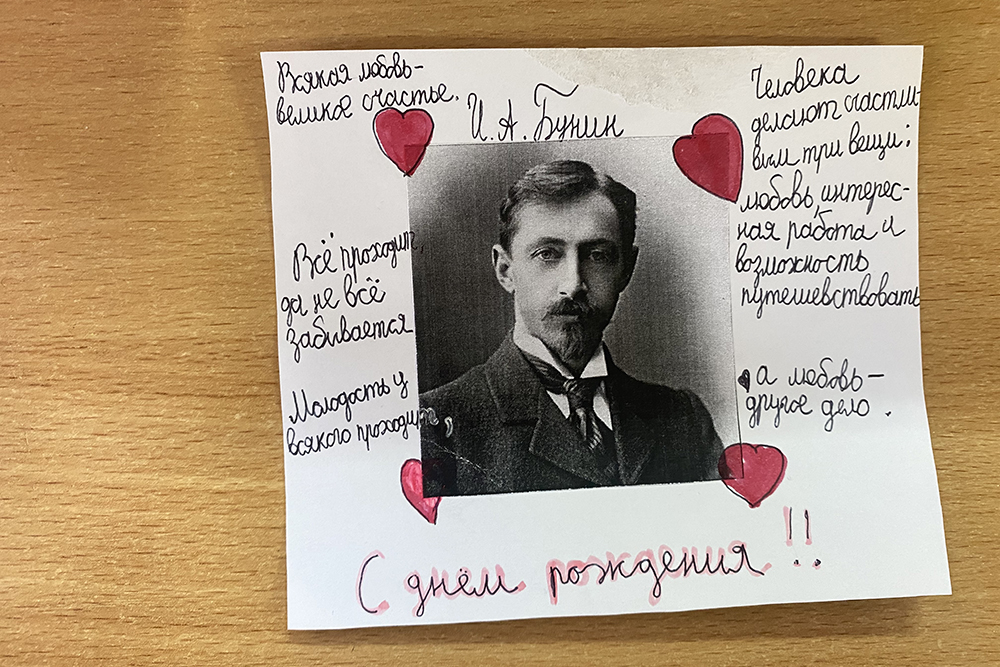 Всякая любовь-
великое счастье.
И. А. Бунин
Человека
делают счастли-
вым три вещи:
любовь, интерес-
ная работа и
возможность
путешевствовать
Всё проходит,
да не всё
забывается
Молодость у
всякого проходит,
а любовь-
другое дело.
С днём рождения!!